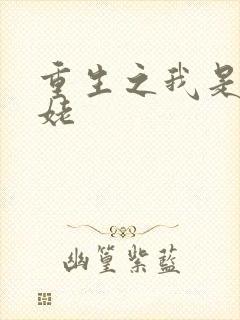 重生之我是
姥
幽篁紫藍